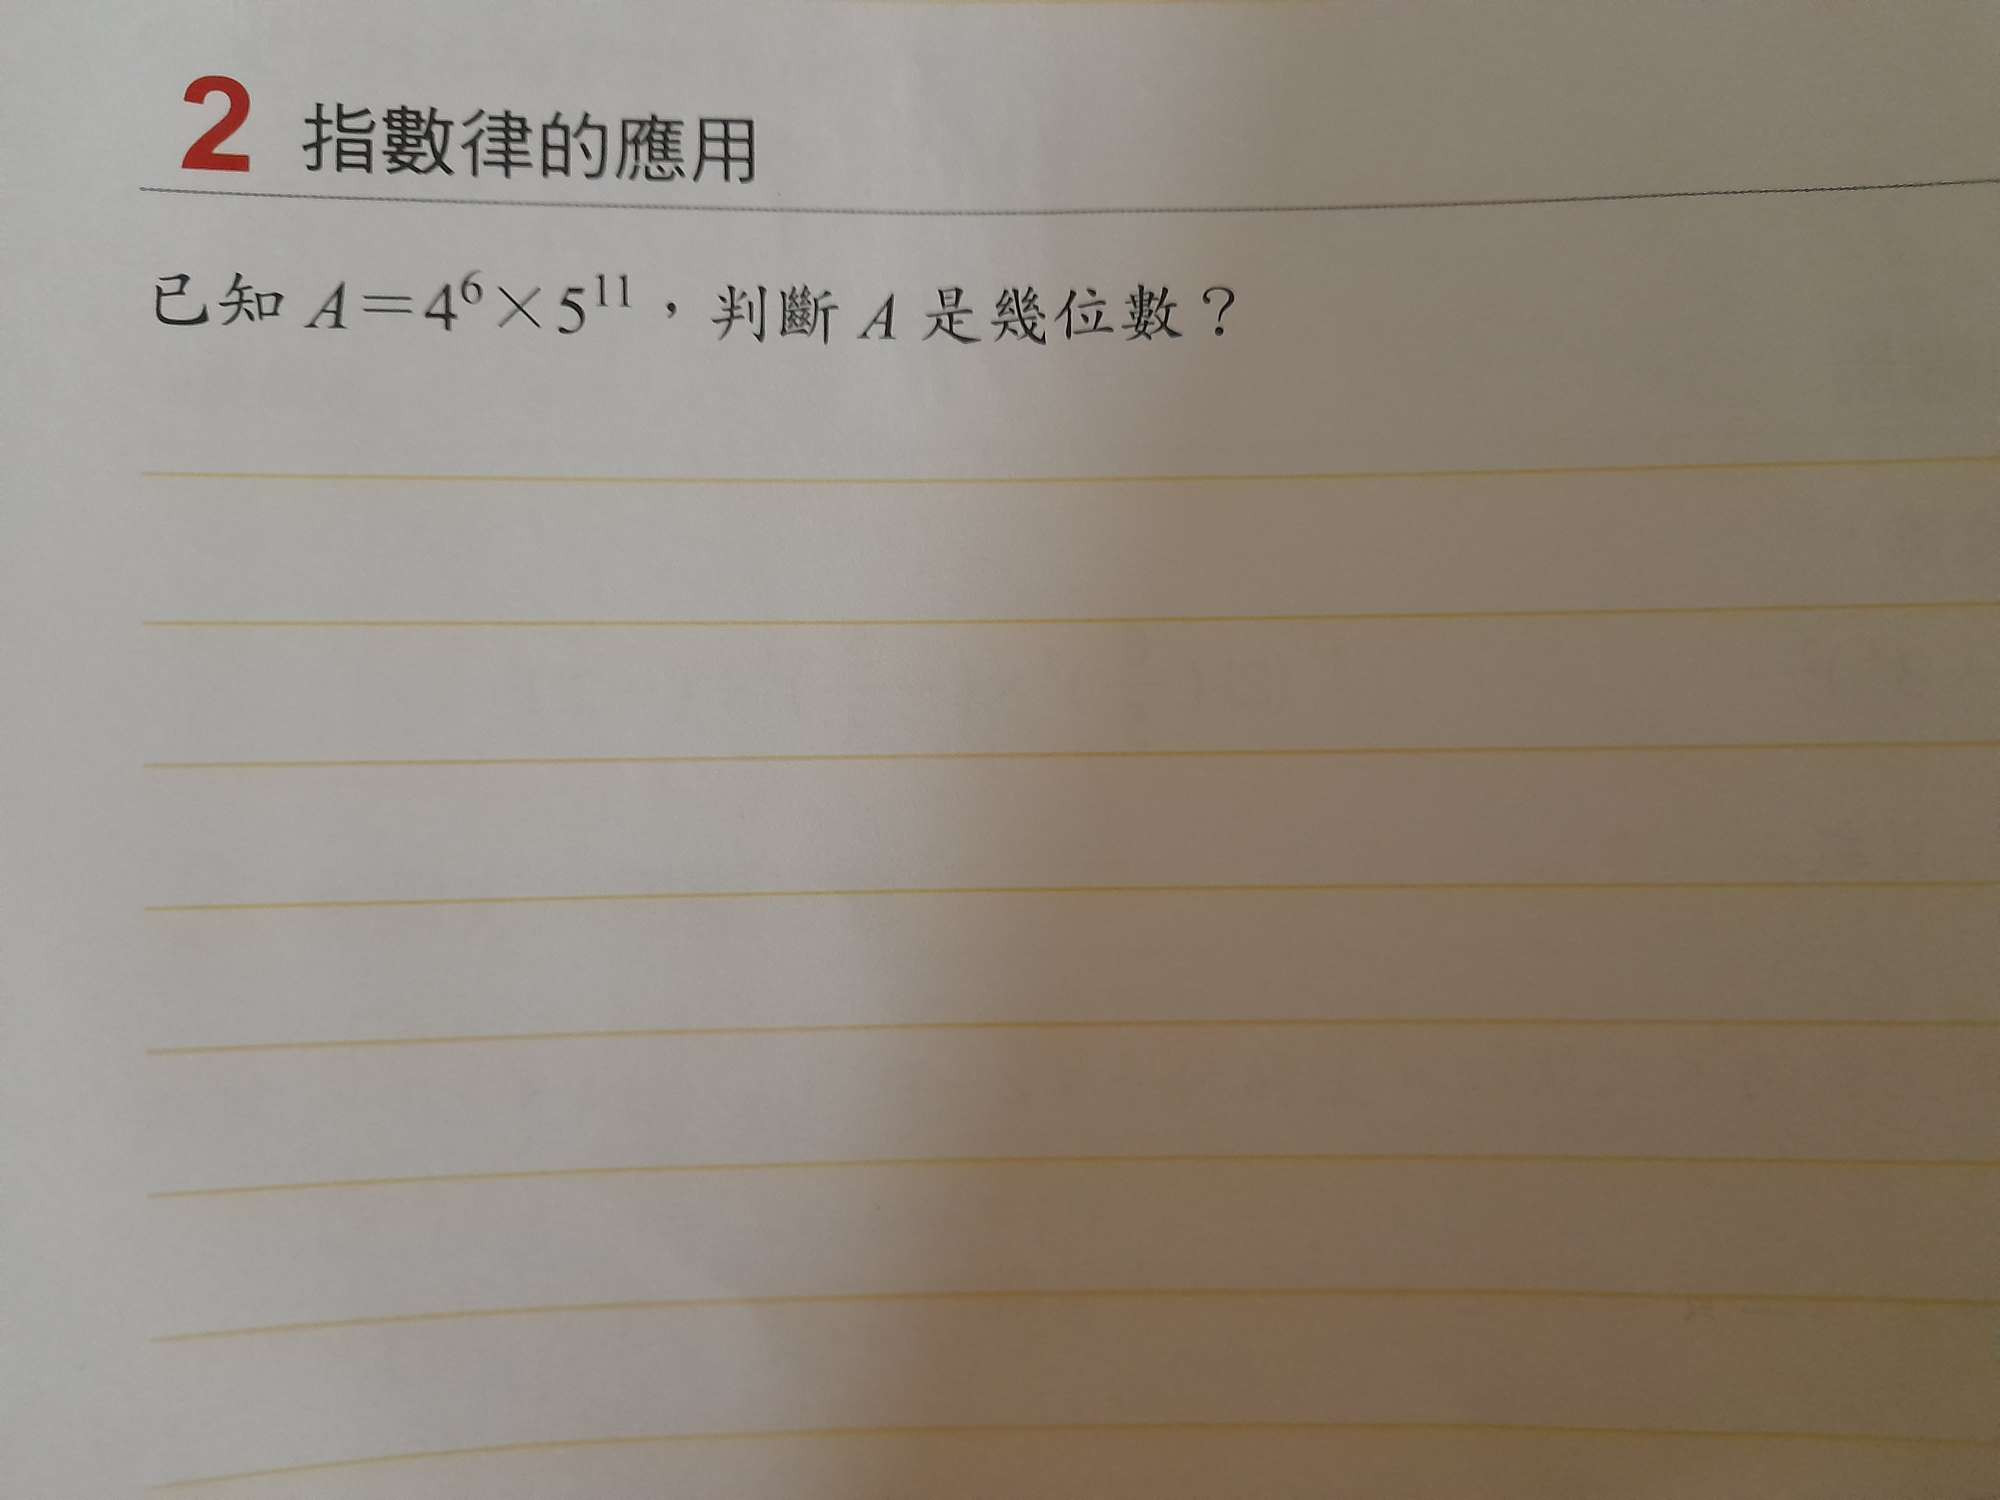 2 指數律的應用
已知 A=4⁶×5¹¹，判斷 A 是幾位數？